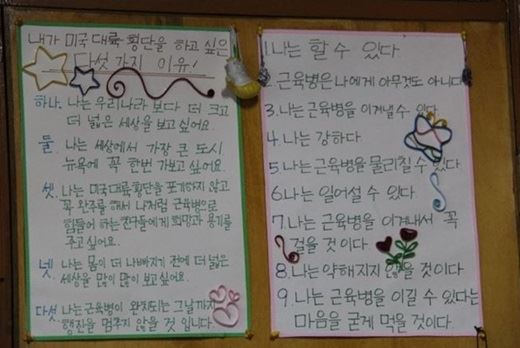 내가 미국 대륙 횡단을 하고 싶은
다섯 가지 이유!
하나. 나는 우리나라 보다 더 크고
더 넓은 세상을 보고 싶어요.
둘. 나는 세상에서 가장 큰 도시
뉴욕에 꼭 한번 가보고 싶어요.
셋. 나는 미국 대륙 횡단을 포기하지 않고
꼭 완주를 해서 나처럼 근육병으로
힘들어 하는 친구들에게 희망과 용기를
주고 싶어요.
넷. 나는 몸이 더 나빠지기 전에 더 넓은
세상을 많이 많이 보고 싶어요.
다섯. 나는 근육병이 완치되는 그날까지
행진을 멈추지 않을 것 입니다.
1. 나는 할 수 있다
2. 근육병은 나에게 아무것도 아니다
3. 나는 근육병을 이겨낼 수 있다
4. 나는 강하다
5. 나는 근육병을 물리칠 수 있다
6. 나는 일어설 수 있다
7. 나는 근육병을 이겨내서 꼭
걸을 것이다
8. 나는 약해지지 않을 것이다
9. 나는 근육병을 이길 수 있다는
마음을 굳게 먹을 것이다.